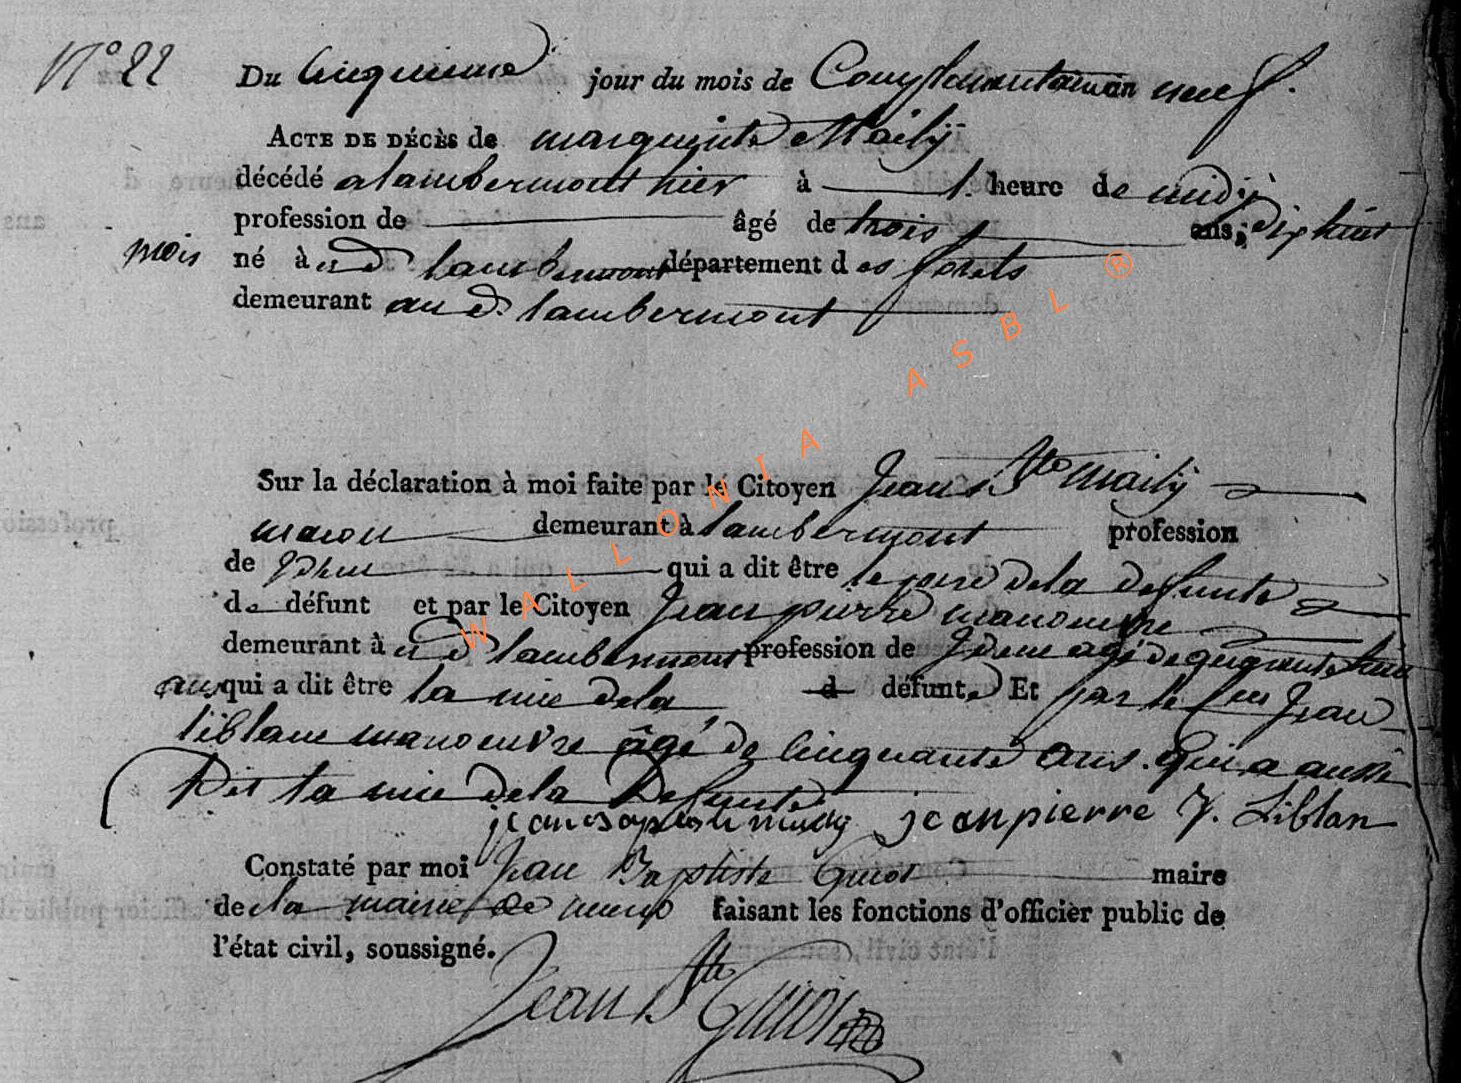 N° 22
Du cinquieme jour du mois de Complementaire an neuf.
ACTE DE DÉCÈS de marguerite Maily
décédé a lambermont hier à 1. heure de midÿ
profession de âgé de trois ans, dix huit
mois né à au d lambermont département des forets
demeurant au d. lambermont
Sur la déclaration à moi faite par le Citoyen Jean Bte Maily
macon demeurant à lambermont profession
de Idem qui a dit être le pere dela defunte
de défunt et par le Citoyen Jean pierre manoeuvre
demeurant à au d lambermont profession de Idem agé de quarante huit
ans qui a dit être la mie dela d défunte Et par le Cen Jean
liblanc manoeuvre âgé de Cinquante ans. qui a aussi
Dit la mie dela Defunte
jean baptiste maily jean pierre J. Liblan
Constaté par moi Jean Baptiste Guiot maire
de la mairie de muno faisant les fonctions d'officier public de
l'état civil, soussigné.
Jean Bte Guiot
WALLONIA ASBL ®